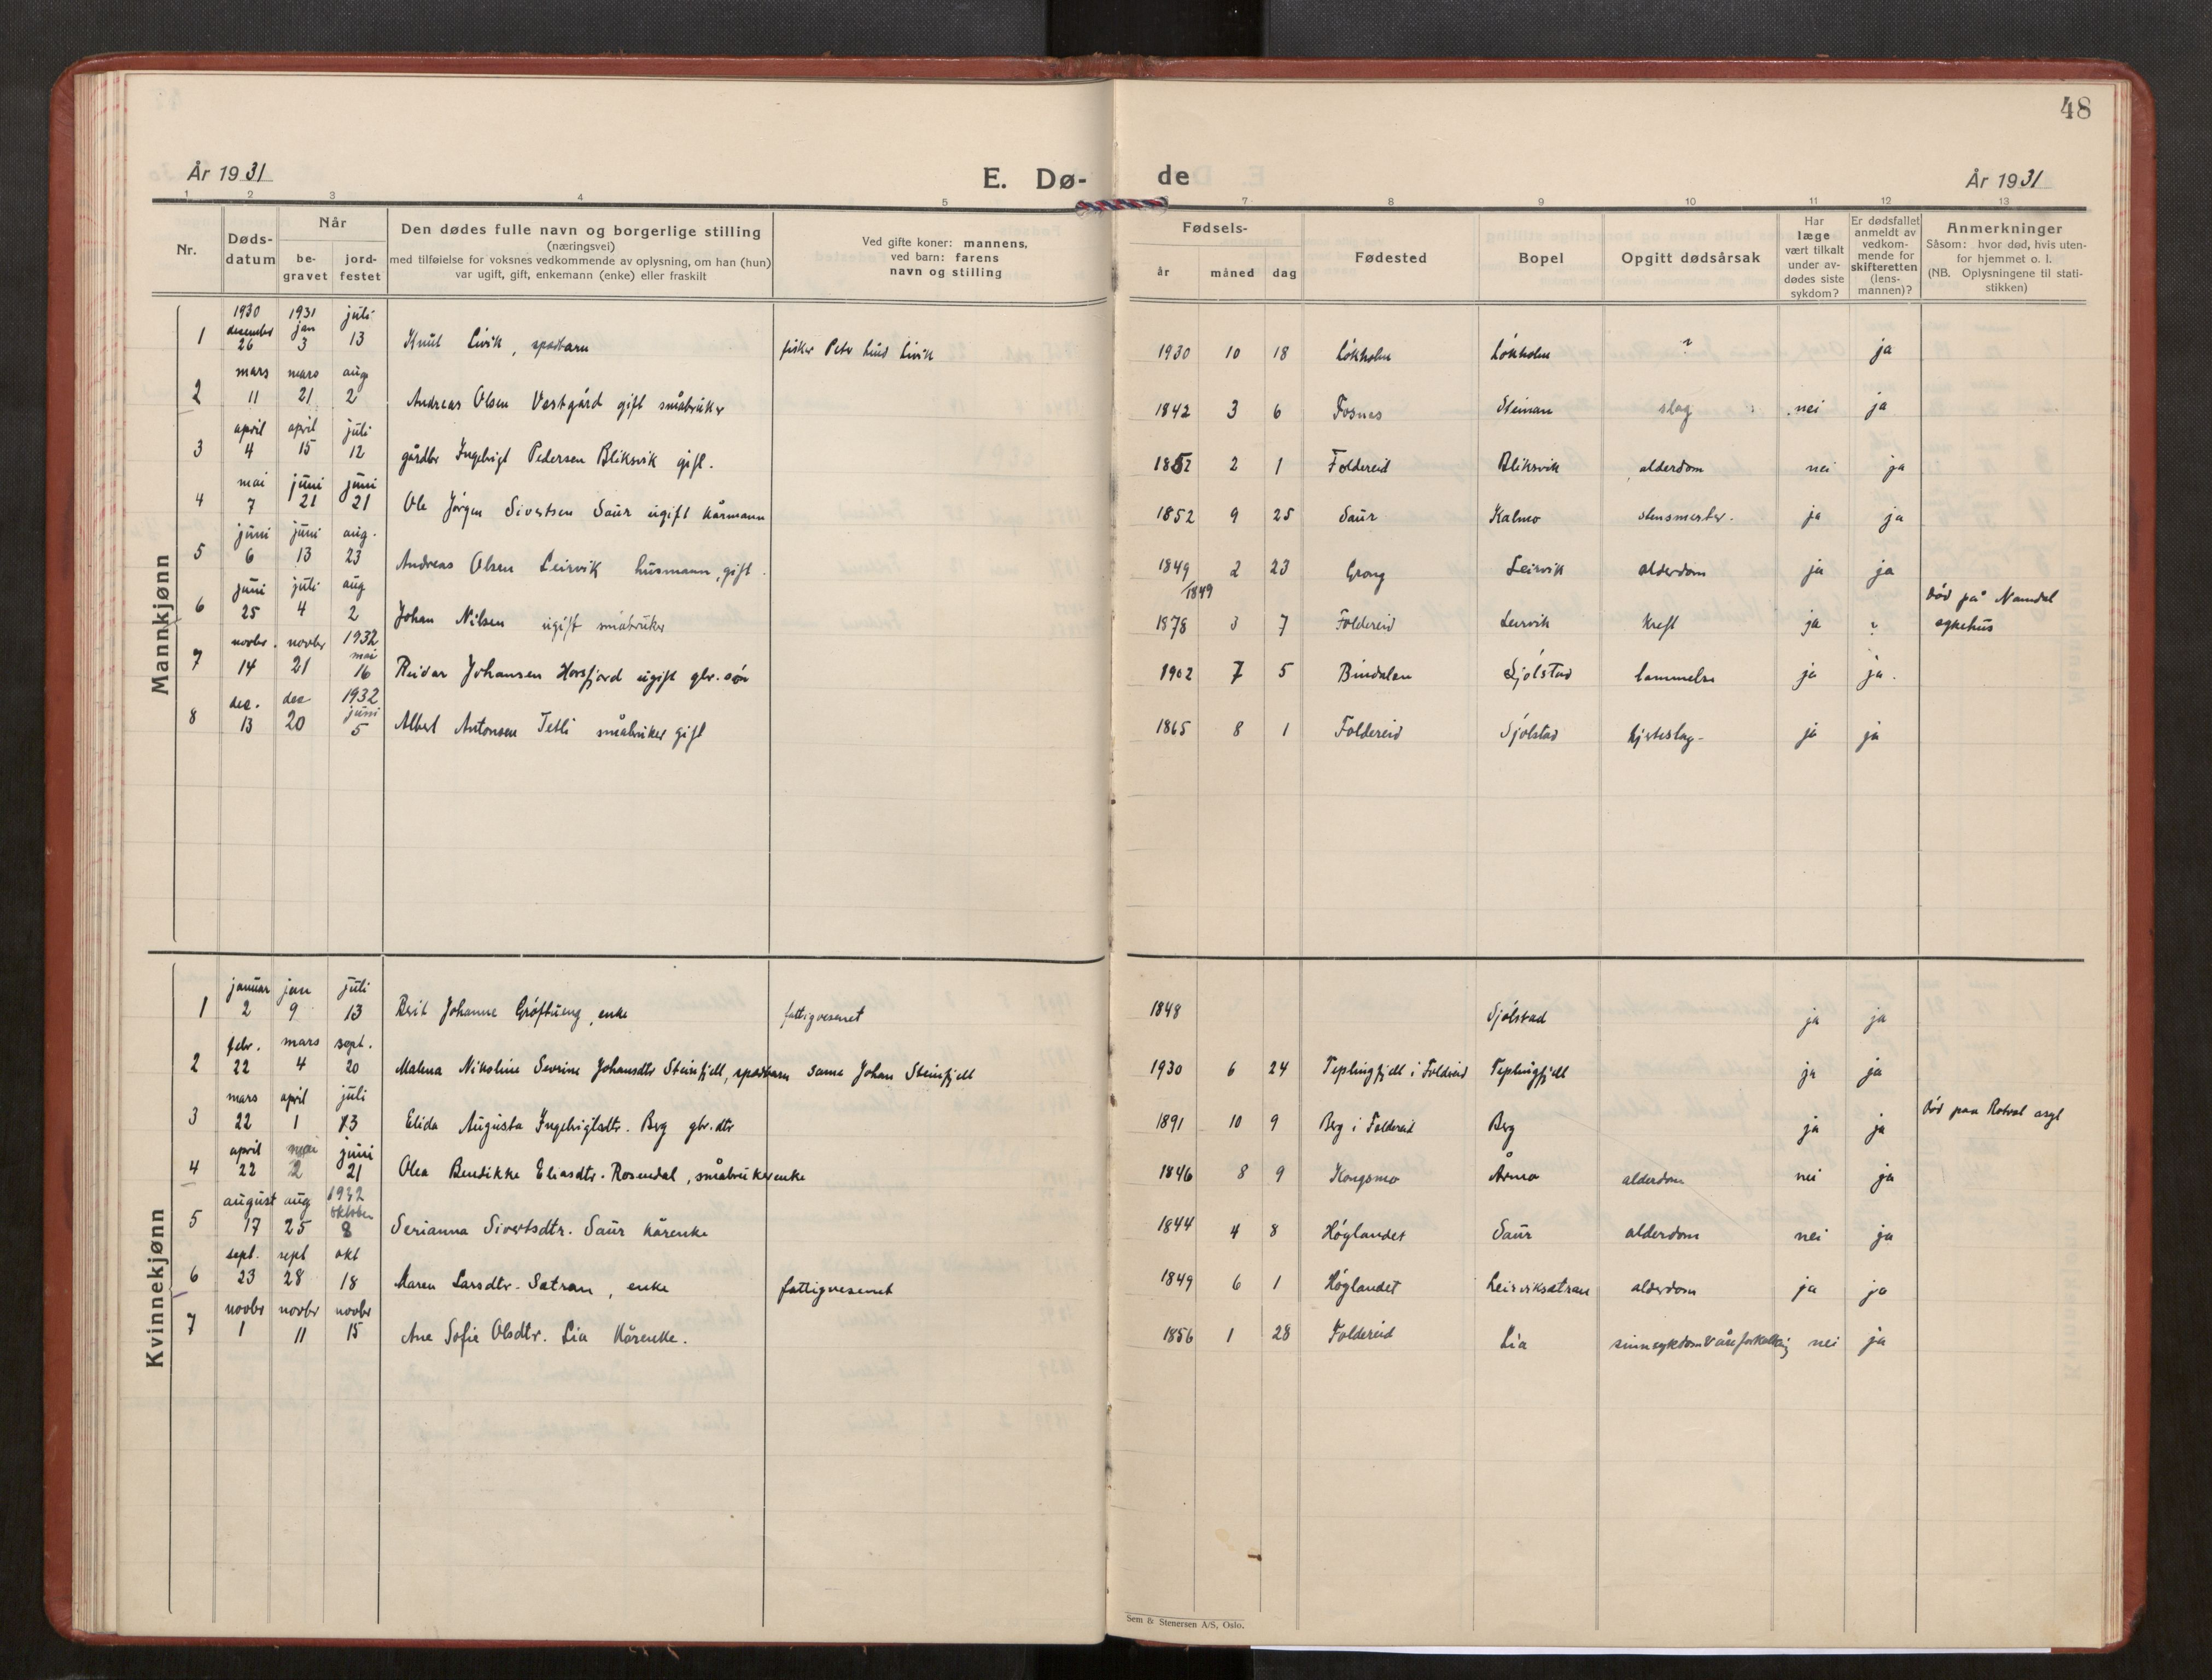 48
År 1931 E. Dø- de År 1931
1 2 3 4 5 7 8 9 10 11 12 13
Nr. Døds-datum Når be-gravet jord-festet Den dødes fulle navn og borgerlige stilling (næringsvei) med tilføielse for voksnes vedkommende av oplysning, om han (hun) var ugift, gift, enkemann (enke) eller fraskilt Ved gifte koner: mannens, ved barn: farens navn og stilling Fødsels- år måned dag Fødested Bopel Opgitt dødsårsak Har læge vært tilkalt under av-dødes siste sykdom? Er dødsfallet anmeldt av vedkom-mende for skifteretten (lens-mannen)? Anmerkninger Såsom: hvor død, hvis uten-for hjemmet o. l. (NB. Oplysningene til stati-stikken)
Mannkjønn
1930 1931 juli
1 desember 26 jan 3 13 Knut Livik, spedbarn fisker Petr Lund Livik 1930 10 18 Lökholm Lökholm ? ja
mars mars aug
2 11 21 2 Andreas Olsen Vestgård gift småbruker 1842 3 6 Fosnes Steinan slag nei ja
april april juli
3 4 15 12 gårdbr Ingebrigt Pedersen Bliksvik gift. 1852 2 1 Foldereid Bliksvik alderdom nei ja
mai juni juni
4 7 21 21 Ole Jörgen Sivertsen Saur ugift kårmann 1852 9 25 Saur Kalmo ja ja
juni juni aug.
5 6 13 23 Andreas Olsen Leirvik husmann, gift. 1849 2 23 Grong Leirvik alderdom ja ja
juni juli aug 1849 Död på Namdal
6 25 4 2 Johan Nilsen ugift småbruker 1878 3 7 Foldereid Leirvik kreft ja ? sykehus
novbr. novbr 1932 mai
7 14 21 16 Reidar Johansen Horsfjord ugift gbr. sön 1902 7 5 Bindalen Sjölstad lammelse ja ja.
des. des 1932 juni
8 13 20 5 Albert Antonsen Tetli småbruker gift 1865 8 1 Foldereid Sjölstad hjerteslag- ja ja
Kvinnekjønn
januar jan juli
1 2 9 13 Berit Johanne Gröftueng, enke fattigvesenet 1848 Sjölstad ja ja
febr. mars sept.
2 22 4 20 Malena Nikoline Sevrine Johansdtr Steinfjell, spedbarn same Johan Steinfjell 1930 6 24 Teplingfjell i Foldreid Teplingfjell ja ja
mars april juli
3 22 1 13 Elida Augusta Ingebrigtsdtr. Berg gbr. dtr 1891 10 9 Berg i Foldereid Berg ja ja Död paa Rotvol asyl
april mai juni
4 22 2 21 Olea Bendikke Eliasdtr. Rosendal, småbrukerenke 1846 8 9 Kongsmo Årmo alderdom nei ja
august aug 1932 oktober
5 17 25 8 Serianna Sivertsdtr. Saur kårenke 1844 4 8 Höylandet Saur alderdom nei ja
sept. sept okt
6 23 28 18 Maren Larsdtr. Sætran, enke fattigvesenet 1849 6 1 Höylandet Leirviksætran alderdom ja ja
novbr novbr novbr
7 1 11 15 Ane Sofie Olsdtr. Lia Kårenke. 1856 1 28 Foldereid Lia sinnsykdom & åreforkalkning nei ja
Sem & Stenersen A/S, Oslo.